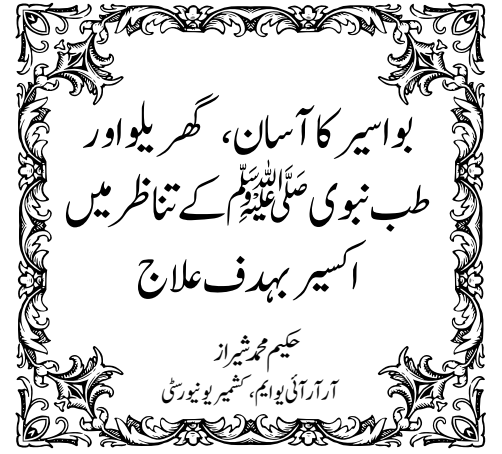 بواسیر کا آسان، گھریلو اور
طب نبوی ﷺ کے تناظر میں
اکسیر بہدف علاج
حکیم محمد شیراز
آر آر آئی یو ایم، کشمیر یونیورسٹی